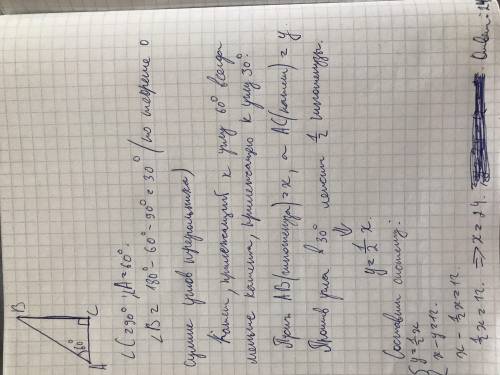 B
A
60°
C
∠C=90°; ∠A=60°.
∠B = 180°-60°-90°=30° (по теореме о
сумме углов треугольника)
Катет, прилежащий к углу 60° всегда
меньше катета, прилежащего к углу 30°.
Пусть AB(гипотенуза)=x, а AC(катет)=y.
Против угла в 30° лежит 1/2 гипотенузы.
y=1/2 x.
Составим систему:
{y=1/2 x
x-y=12.
x-1/2x=12
1/2 x=12. => x=24.
Ответ: 24